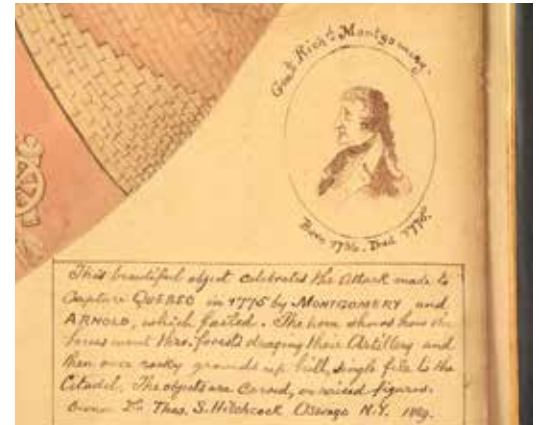 Genl. Richd. Montgomery.
Born 1736. Died 1775.
This beautiful object celebrates the Attack made to
Capture QUEBEC in 1775 by MONTGOMERY and
ARNOLD, which failed. The horn shows how the
forces went thro. forests draging their Artillery and
then over rocky grounds up hill, single file to the
Citadel. The objects are Carved, on raised figures.
Owner Dr. Thos. S. Hitchcock Oswego N.Y. 1889.